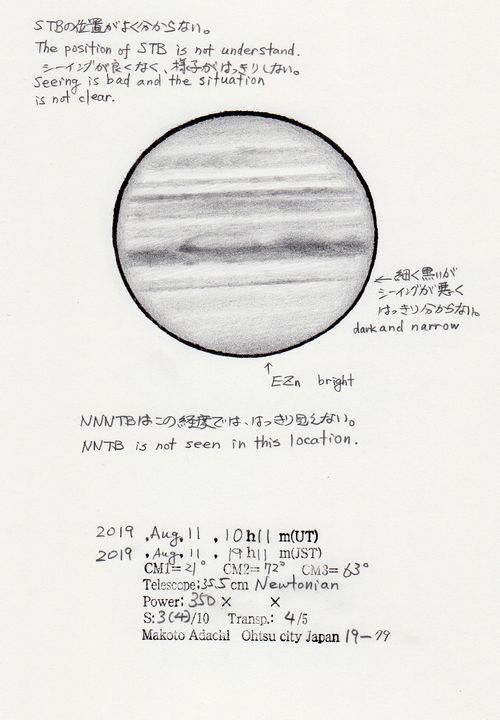 STBの位置がよく分からない。
The position of STB is not understand.
シーイングが良くなく、様子がはっきりしない。
Seeing is bad and the situation
is not clear.
← 細く黒いが
シーイングが悪く
はっきり分からない。
dark and narrow
↑
EZn bright
NNNTBはこの経度では、はっきり見えない。
NNTB is not seen in this location.
2019 .Aug. 11 . 10 h 11 m(UT)
2019 .Aug. 11 . 19 h 11 m(JST)
CM1= 21° CM2= 72° CM3= 63°
Telescope: 35.5 cm Newtonian
Power: 350 × ×
S: 3(4)/10 Transp.: 4/5
Makoto Adachi Ohtsu city Japan 19-79